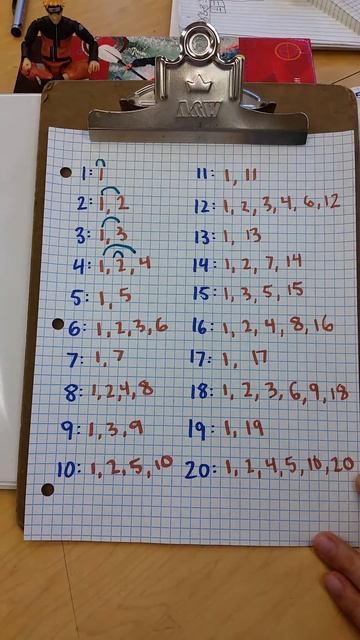 A&W
1: 1
2: 1, 2
3: 1, 3
4: 1, 2, 4
5: 1, 5
6: 1, 2, 3, 6
7: 1, 7
8: 1, 2, 4, 8
9: 1, 3, 9
10: 1, 2, 5, 10
11: 1, 11
12: 1, 2, 3, 4, 6, 12
13: 1, 13
14: 1, 2, 7, 14
15: 1, 3, 5, 15
16: 1, 2, 4, 8, 16
17: 1, 17
18: 1, 2, 3, 6, 9, 18
19: 1, 19
20: 1, 2, 4, 5, 10, 20